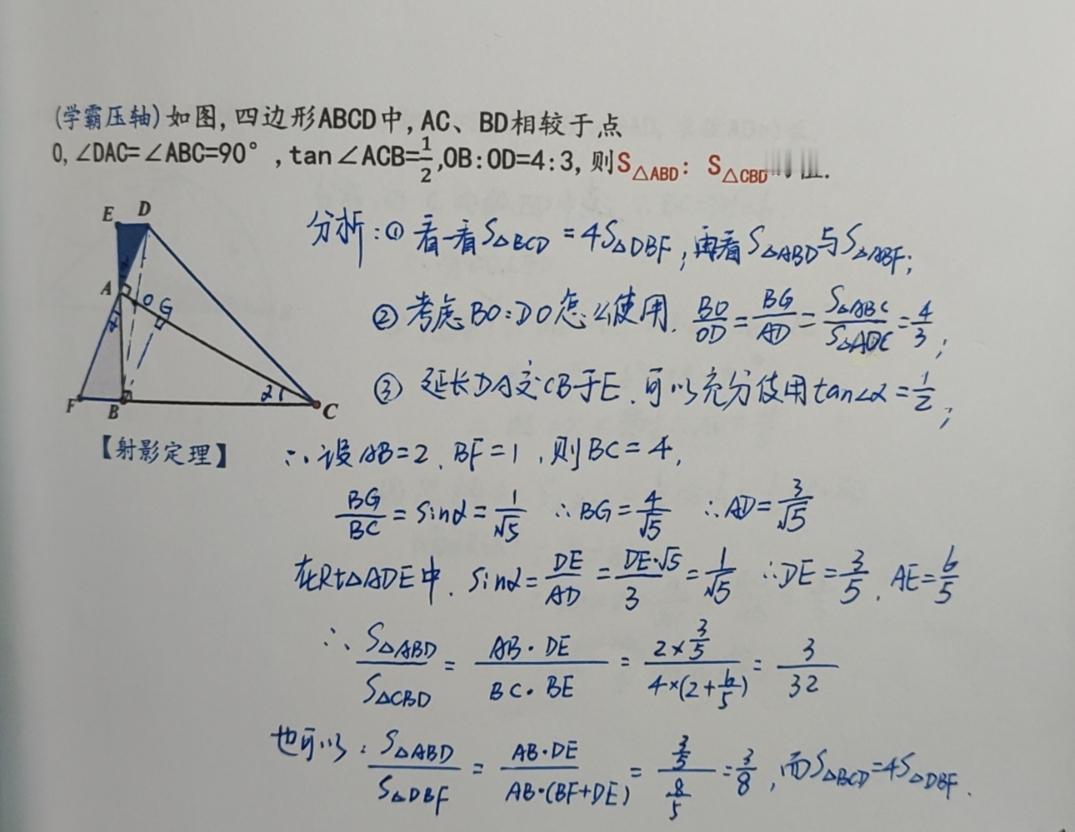 (学霸压轴) 如图,四边形ABCD中,AC、BD相较于点
O,∠DAC=∠ABC=90°,tan∠ACB=1/2,OB:OD=4:3,则S△ABD: S△CBD
E D
A O G
α
F B α C
【射影定理】
分析:① 看一看S△BCD=4S△DBF,再看S△ABD与S△ABF;
② 考虑BO:DO怎么使用. BO/OD=BG/AD=S△ABC/S△ADC=4/3;
③ 延长DA交CB于E.可以充分使用tan∠α=1/2;
∴设AB=2、BF=1,则BC=4,
BG/BC=sinα=1/√5 ∴BG=4/√5 ∴AD=3/√5
在Rt△ADE中. sinα=DE/AD=DE·√5/3=1/√5 ∴DE=3/5、AE=6/5
∴S△ABD/S△CBD=AB·DE/BC·BE=2×3/5/4×(2+6/5)=3/32
也可以:S△ABD/S△DBF=AB·DE/AB·(BF+DE)=3/5/8/5=3/8,而S△BCD=4S△DBF.